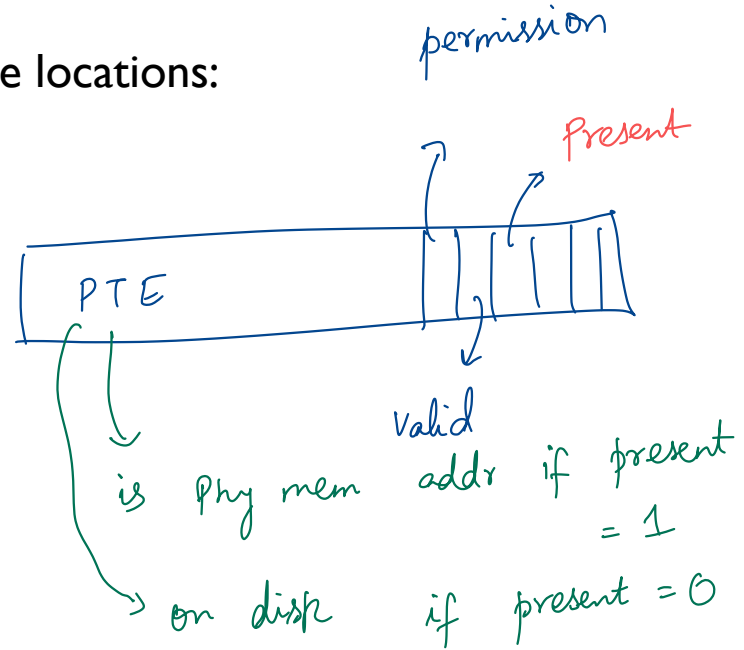 permission
e locations:
Present
PTE
Valid
is Phy mem addr if present
= 1
on disk if present = 0